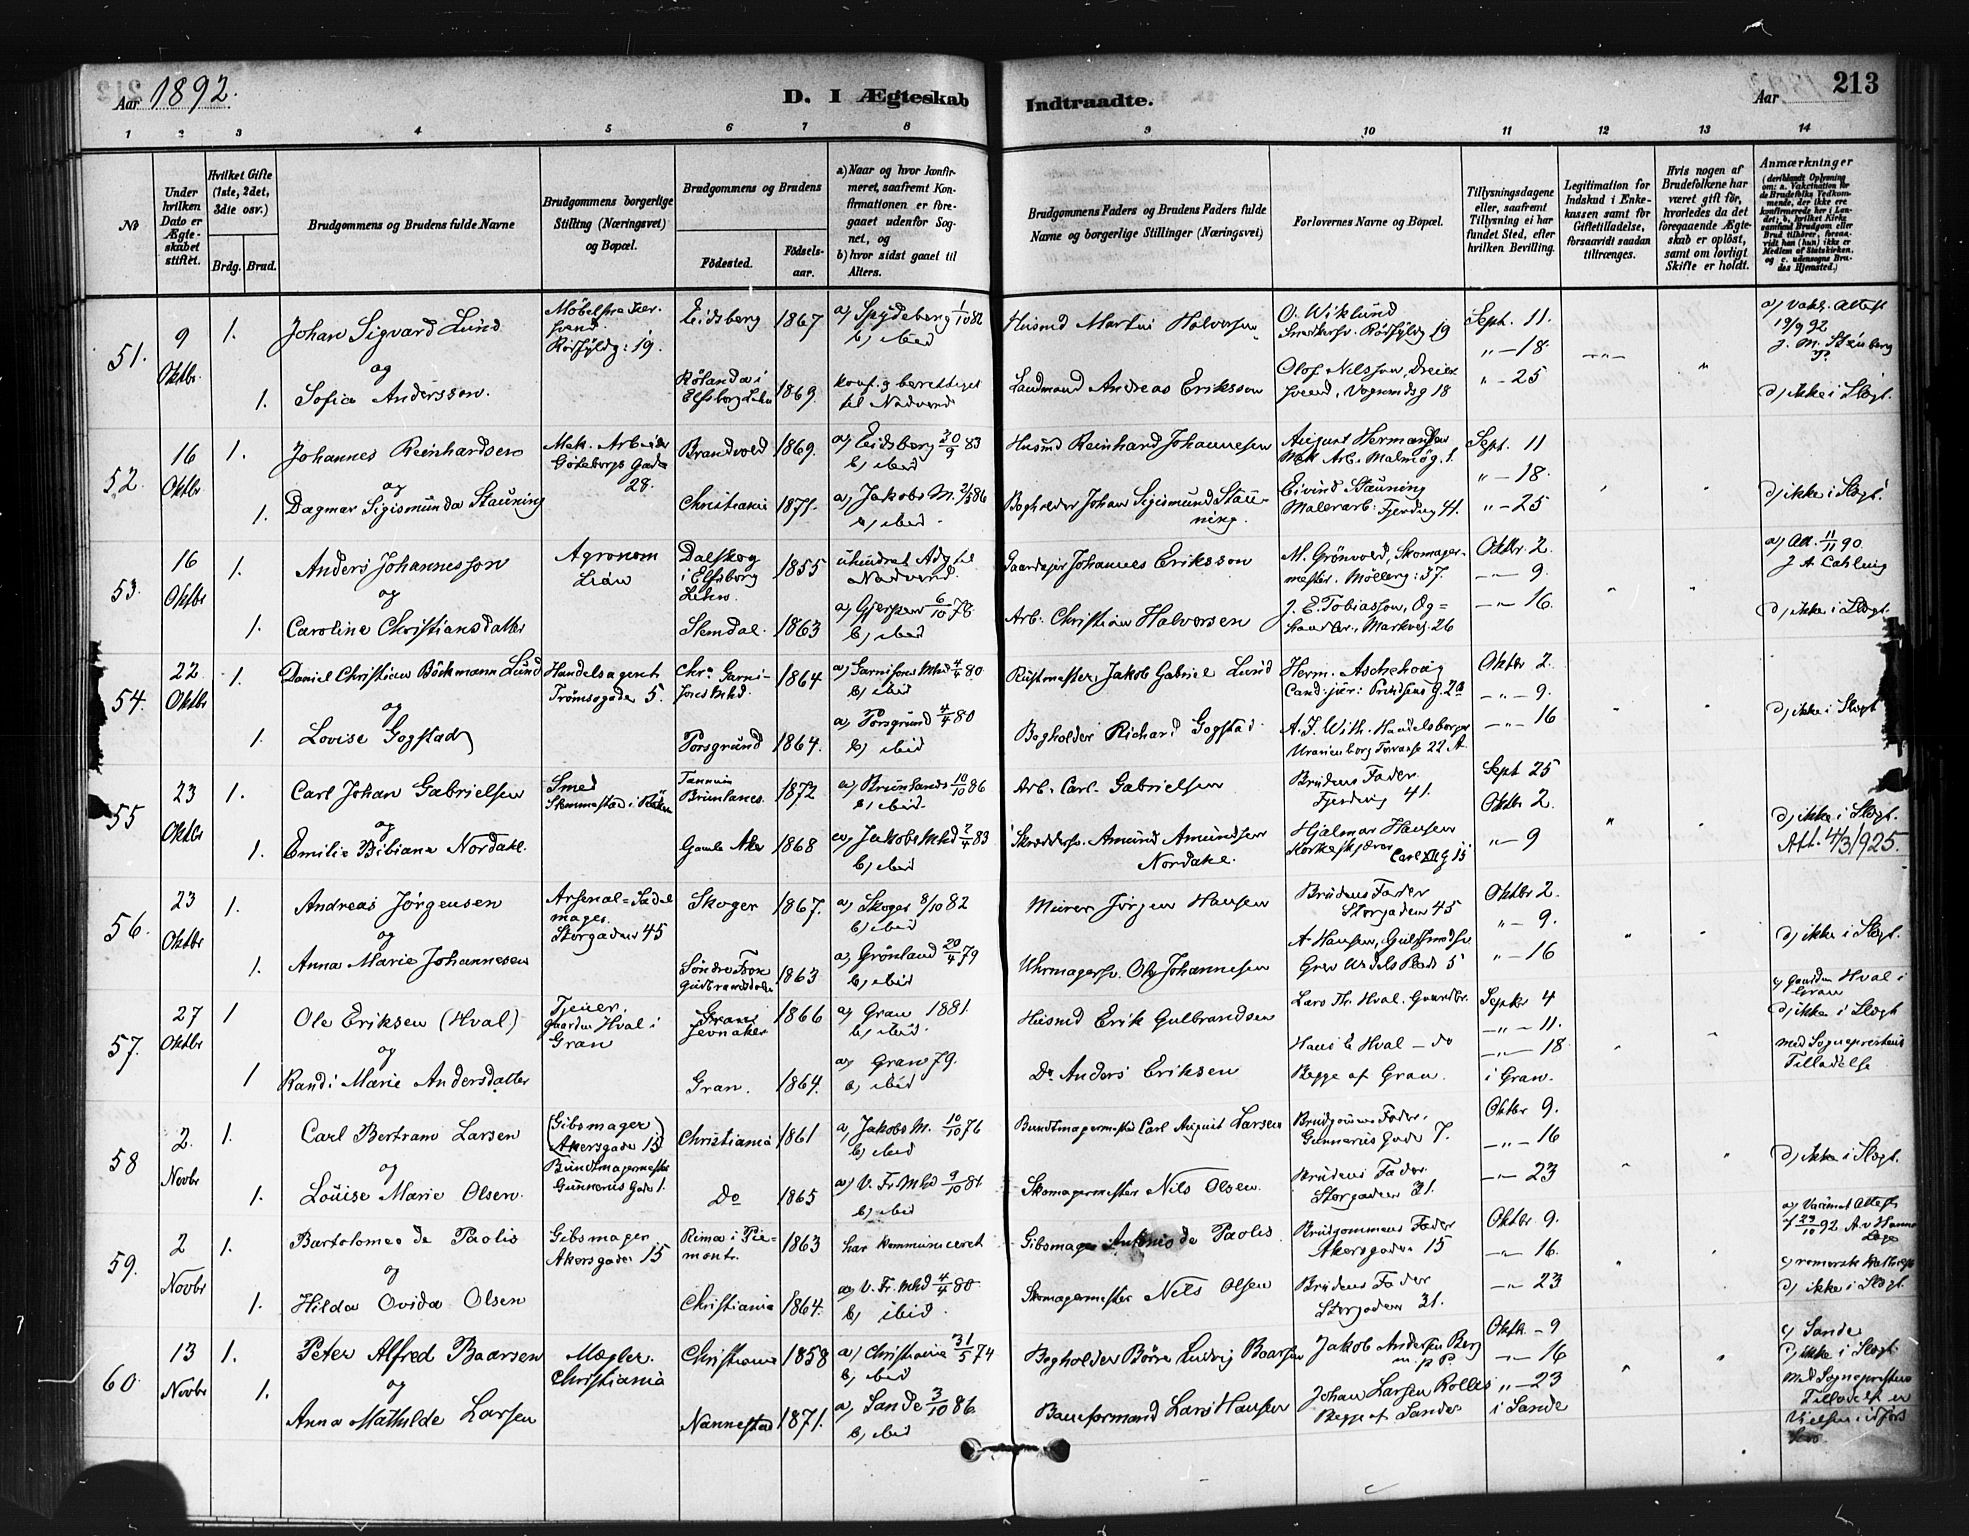 Aar 1892.
D. I Ægteskab Indtraadte.
Aar
213
1 2 3 4 5 6 7 8 9 10 11 12 13 14
No
Under hvilken Dato er Ægteskabet stiftet.
Hvilket Gifte (1ste, 2det, 3die osv.)
Brdg. Brud.
Brudgommens og Brudens fulde Navne
Brudgommens borgerlige Stilling (Næringsvei) og Bopæl.
Brudgommens og Brudens
Fødested.
Fødselsaar.
a) Naar og hvor konfirmeret, saafremt Konfirmationen er foregaaet udenfor Sognet, og
b) hvor sidst gaaet til Alters.
Brudgommens Faders og Brudens Faders fulde Navne og borgerlige Stillinger (Næringsvei)
Forlovernes Navne og Bopæl.
Tillysningsdagene eller, saafremt Tillysning ei har fundet Sted, efter hvilken Bevilling.
Legitimation for Indskud i Enkekassen samt for Giftetilladelse, forsaavidt saadan tiltrænges.
Hvis nogen af Brudefolkene har været gift før, hvorledes da det foregaaende Ægteskab er opløst, samt om lovligt Skifte er holdt.
Anmærkninger
51. 9 Oktbr. 1. Johan Sigvard Lund
Rørfyldg: 19.
Eidsberg 1867 a) Spydeberg 1/10 82 b) ibid
Husmd Martin Halvorsen
O. Wiklund
Rörfyldg 19
Sept. 11.
" — 18
" — 25
a) Vakc. Attest
19/9 92
J. M. Stenberg
og
1. Sofia Andersson.
Elfsborg Lehn 1869. konf. g berettiget til Nadverd
Landmand Andreas Eriksson
Olof Nilsson, Dreier
svend, Vognmdsg 18
d) ikke i Slægt.
52. 16 Oktbr 1. Johannes Reinhardsen
Mek. Arbeider
Göteborgs Gade
28.
Brandvold 1869. a) Eidsberg 30/9 83 b) ibid
Husmd Reinhard Johannesen
August Hermansen
Mek Arb. Malmög. 1.
Sept. 11
" — 18.
" — 25
og
1. Dagmar Sigismunda Stauning
Christiania 1871. a) Jakobs M. b) ibid
Bogholder Johan Sigismund Stauning.
Eivind Stauning
Malerarb: Fjerdeg 41.
d) ikke i Slægt
53. 16 Oktbr 1. Anders Johannesson
Agronom
Dalskog
i Elfsborg
Lehn.
1855 uhindret Adg til Nadverd.
Gaardejer Johannes Eriksson
M. Grönvold, Skomager-
mester. Möllerg: 37.
Oktbr. 2.
— " — 9.
— " — 16.
a) Att. 11/11 90
og
1. Caroline Christiansdatter
Slemdal. 1863 a) Gjerpen 6/10 78 b) ibid
Arb. Christian Halvorsen
J. E. Tobiasson,
Markvei 26
d) ikke i Slægt.
54. 22 Oktbr 1. Daniel Christian Böckmann Lund
Handelsagent
Tromsøgade 5.
Chra. Garni-
sons Mhd.
1864 a) Garnisons Mhd 4/4 80 b) ibid
Rüstmester Jakob Gabriel Lund
Herm. Aschehoug
Cand: jur:
Oktbr 2.
— " — 9.
— " — 16
og
1. Lovise Gogstad
Porsgrund 1864. a) Porsgrund 4/4 80 b) ibid
Bogholder Richard Gogstad
A. F. With. Handelsborger
Uranienborg Terrasse 22. A.
d) ikke i Slægt
55 23 Oktbr 1. Carl Johan Gabrielsen
Smed
Slemmestad i Röken
Tannum
Brunlanes.
1872 a) Brunlanes 10/10 86 b) ibid.
Arb. Carl Gabrielsen
Brudens Fader
Fjerdeg 41.
Sept 25
Oktbr 2.
" — 9
og
1. Emilie Bibiane Nordahl.
Gamle Aker 1868 a) Jakobs Mhd b) ibid
Skrædders. Amund Amundsen
Nordahl.
Hjalmar Hansen
Korkeskjærer Carl XII g 15
d) ikke i Slægt.
Att. 4/3 1925.
56. 23 Oktbr 1. Andreas Jørgensen
Arsenal-Sadel
mager.
Storgaden 45
Skoger 1867. a) Skoger 8/10 82 b) ibid
Murer Jörgen Hansen
Brudens Fader
Storgaden 45
Oktbr 2.
" — 9.
" — 16
og
1. Anna Marie Johannesen
Söndre Fron
Gudbrandsdalen
1863 a) Grönland 20/4 79 b) ibid
Uhrmagersv. Ole Johannesen
A Hansen, Guldsmedsv
Grev Wedels Plads 5
d) ikke i Slægt.
57. 27 Oktbr 1 Ole Eriksen (Hval)
Tjener.
Gaarden Hval i
Gran
Gran
Jevnaker
1866 a) Gran 1881. b) ibid.
Husmd Erik Gulbrandsen
Lars Th. Hval. Gaardbr.
Septbr 4
— " — 11.
— " — 18
i Gran.
c) Gaarden Hval i
Gran
d) ikke i Slægt
Med Sogneprestens
Tilladelse
og
1 Randi Marie Andersdatter
Gran. 1864. a) Gran 79. b) ibid
Do Anders Eriksen
Hans E Hval — do
Begge af Gran.
58 2. Novbr 1. Carl Bertram Larsen
(Gibsmager)
(Akersgade 15)
Bundtmagermester
Gunnerus Gade 1.
Christiania 1861 a) Jakobs M. 10/10 76 b) ibid
Bundtmagermester Carl August Larsen
Brudgoms Fader.
Gunnerus Gade 7.
Oktbr 9.
— " — 16
— " — 23
og
1. Louise Marie Olsen.
Do 1865 a) V. Fr. Mhd 9/10 81 b) ibid
Skomagermester Nils Olsen.
Brudens Fader
Storgaden 31.
d) ikke i Slægt.
59. 2 Novbr 1. Bartolomeo de Paolis
Gibsmager
Akersgaden 15
Rima i Pie-
mont.
1863 har kommuniceret
Gibsmager Antonio de Paolis
Brudgommens Fader
Akersgaden 15
Oktbr 9.
— " — 16.
— " — 23
og
1. Hilda Ovida Olsen
Christiania 1864. a) V. Fr. Mhd 4/4 80 b) ibid.
Skomagermester Nils Olsen
Brudens Fader
Storgaden 31.
c) romersk Katholsk
d) ikke i Slægt.
60 13 Novbr 1. Peter Alfred Baarsen
Mægler.
Christiania
Christiania 1858 a) Christiania 31/5 74 b) ibid
Bogholder Börre Ludvig Baarsen
Jakob Andersen Berg
Oktbr — 9
— " — 16
" — 23
i Sande
c) Sande
d) ikke i Slægt.
Med Sogneprestens
og
1. Anna Mathilde Larsen
Nannestad 1871. a) Sande 3/10 86. b) ibid
Baneformand Lars Hansen
Johan Larsen Rolles
Begge af Sande.